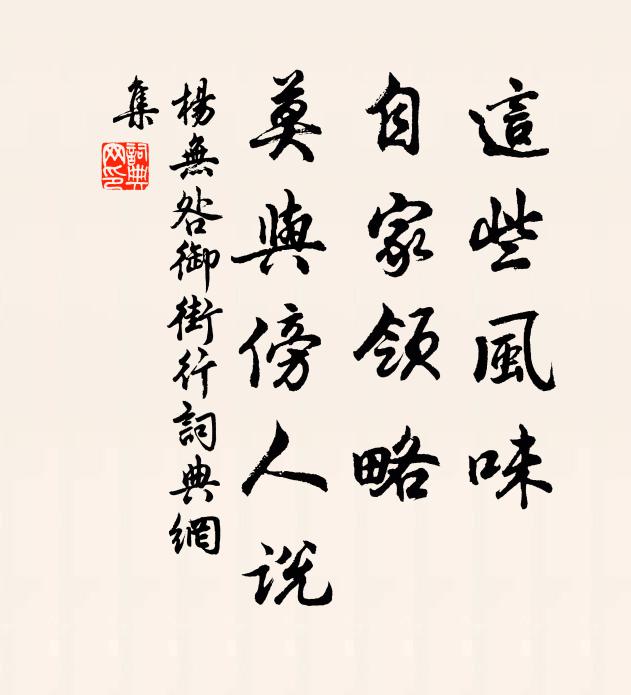 這些風味
自家領略
莫與傍人說
楊無咎御街行詞典網
集
詞典
网印